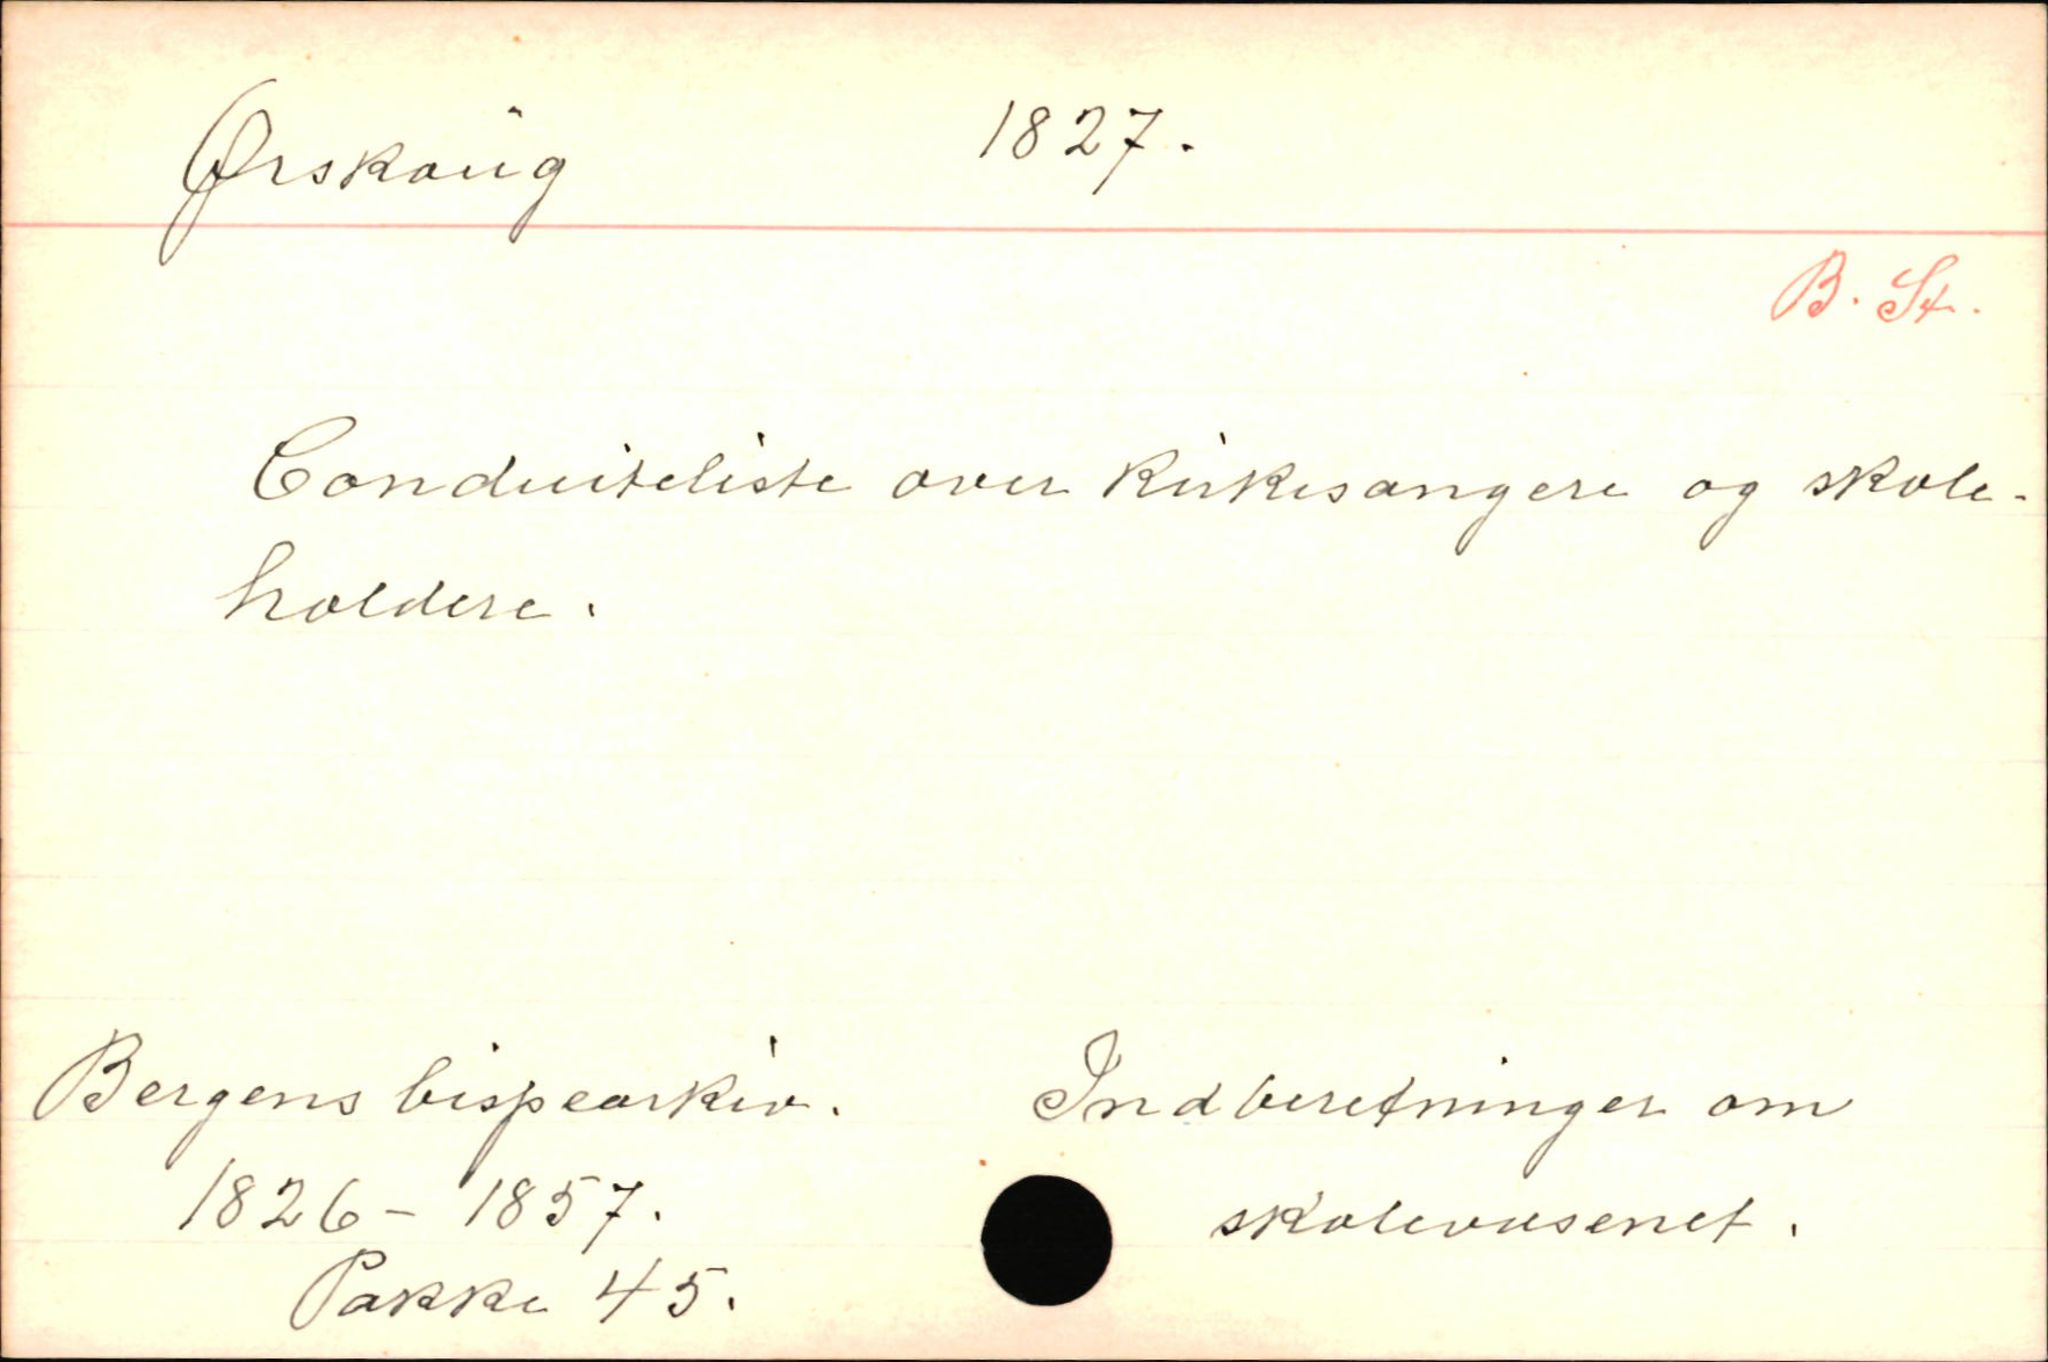 Ørskoug 1827.
B. St.
Conduiteliste over kirkesangere og skole-
holdere.
Bergens bispearkiv. Indberetninger om
1826 - 1857. skolevæsenet.
Pakke 45.